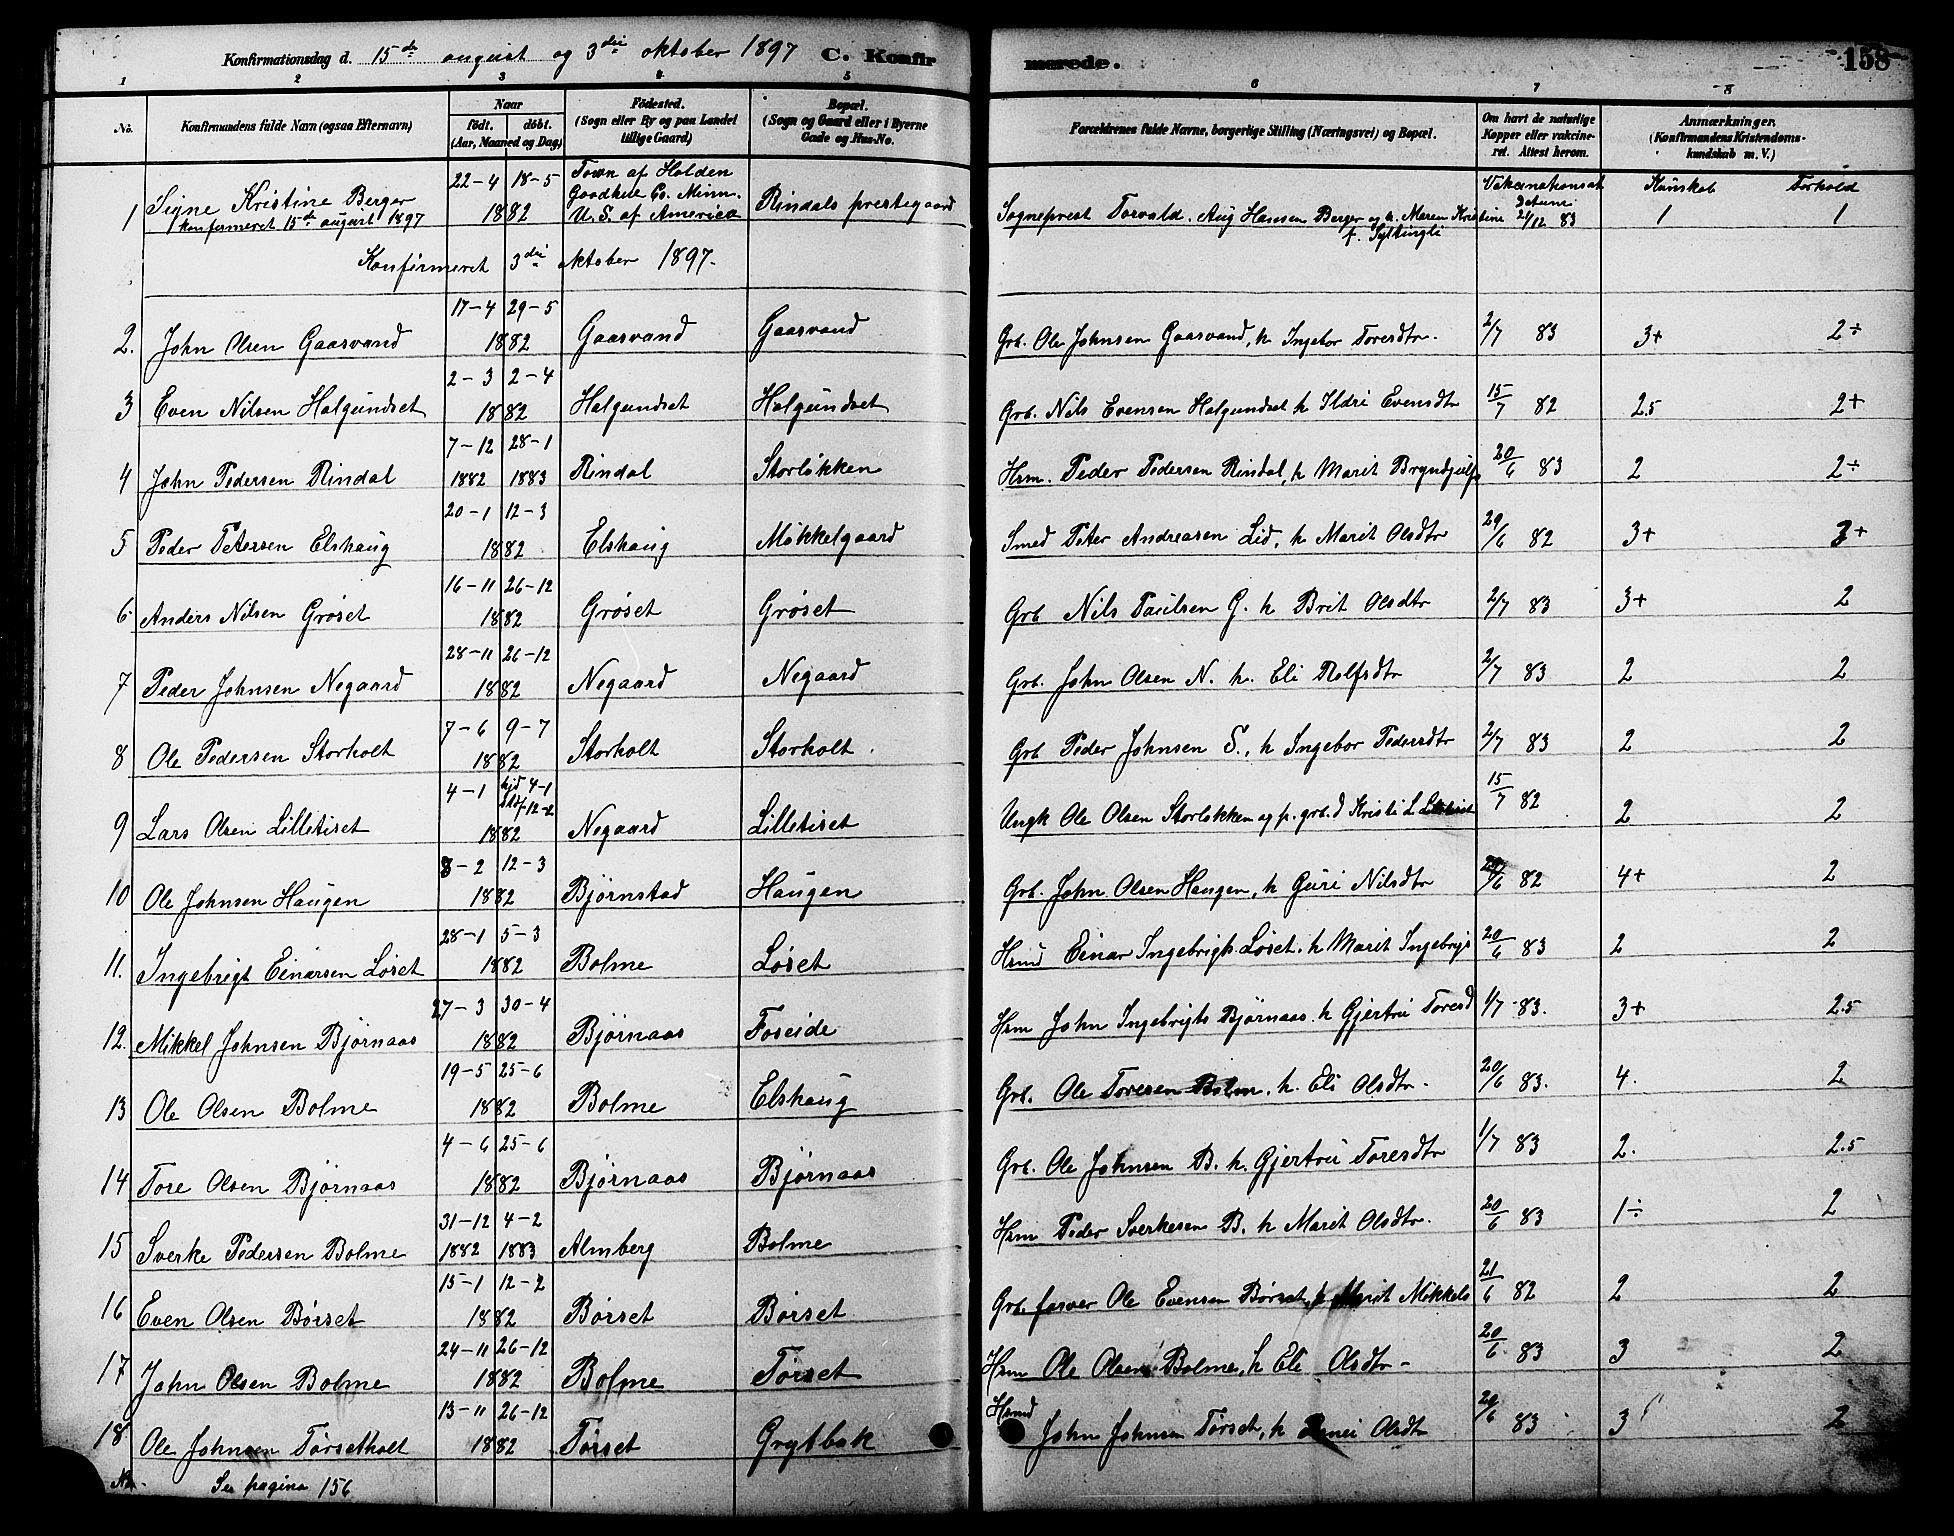 Konfirmationsdag d. 15de august og 3die oktober 1897 C. Konfirmerede. 158
1 2 3 4 5 6 7 8
No. Konfirmandens fulde Navn (ogsaa Efternavn) Naar født. døbt. (Aar, Maaned og Dag) Fødested. (Sogn eller By og paa Landet tillige Gaard) Bopæl. (Sogn og Gaard eller i Byerne Gade og Hus-No. Forældrenes fulde Navne, borgerlige Stilling (Næringsvei) og Bopæl. Om havt de naturlige Kopper eller vakcineret. Attest herom. Anmærkninger. (Konfirmandens Kristendomskundskab m. V.)
Vakcinationsat Datum Kunskab Forhold
1 Signe Kristine Berger konfirmeret 15de august 1897 22-4 18-5 1882 Town af Holden Goodhue Co. Minn. U.S. af America Rindals prestegaard Sogneprest Torvald Aug Hansen Berger og h. Maren Kristine f. 21/12 83 1 1
Konfirmeret 3die oktober 1897.
2. John Olsen Gaasvand 17-4 29-5 1882 Gaasvand Gaasvand Grb. Ole Johnsen Gaasvand, h Ingebor Toresdtr. 2/7 83 3+ 2÷
3 Even Nilsen Halgundset 2-3 2-4 1882 Halgundset Halgundset Grb. Nils Evensen Halgundset h Ildri Evensdtr 15/7 82 2.5 2+
4 John Pedersen Rindal 7-12 28-1 1882 1883 Rindal Storløkken Hsm. Peder Pedersen Rindal, h Marit Bryndjulfs 20/6 83 2 2÷
5 Peder Petersen Elshaug 20-1 12-3 1882 Elshaug Møkkelgaard Smed Peter Andreasen Lid, h Marit Olsdtr 29/6 82 3+ 2+
6 Anders Nilsen Grøset 16-11 26-12 1882 Grøset Grøset Grb Nils Paulsen G. h Brit Olsdtr 2/7 83 3+ 2
7 Peder Johnsen Negaard 28-11 26-12 1882 Negaard Negaard Grb. John Olsen N. h. Eli Rolfsdtr 2/7 83 2 2
8 Ole Pedersen Storholt 7-6 9-7 1882 Storholt Storholt. Grb Peder Johnsen S., h Ingebor Pedersdtr 2/7 83 2 2
9 Lars Olsen Lilletiset 4-1 hjd 4-1 12-2 1882 Negaard Lilletiset Ungk Ole Olsen Storløkken og p. grb. d Kristi L 15/7 82 2 2
10 Ole Johnsen Haugen 8-2 12-3 1882 Bjørnstad Haugen Grb. John Olsen Haugen, h Guri Nilsdtr 82 4+ 2
11. Ingebrigt Einarsen Løset 28-1 5-3 1882 Bolme Løset Hsmd Einar Ingebrigts. Løset. h Marit Ingebrigs 20/6 83 2 2
12. Mikkel Johnsen Bjørnaas 27-3 30-4 1882 Bjørnaas Foseide Hsm John Ingebrigts Bjørnaas. h Gjertru Toresd 1/7 83. 3+ 2.5
13 Ole Olsen Bolme 19-5 25-6 1882 Bolme Elshaug Grb. Ole Toresen Bolm, h. Eli Olsdtr. 20/6 83. 4. 2
14 Tore Olsen Bjørnaas 4-6 25-6 1882 Bjørnaas Bjørnaas Grb. Ole Johnsen B. h. Gjertru Toresdtr 1/7 83 2. 2.5
15 Sverke Pedersen Bolme 31-12 4-2 1882 1883 Almberg Bolme Hsm Peder Sverkesen B. h Marit Olsdtr. 20/6 83 1÷ 2
16 Even Olsen Børset 15-1 12-2 1882 Børset Børset Grb. forver Ole Evensen Børset, h Marit Mikkels 21/6 82 2 2
17 John Olsen Bolme 24-11 26-12 1882 Bolme Tørset Hsm Ole Olsen Bolme, h Eli Olsdtr- 20/6 83 3 2
18 Ole Johnsen Tørsetholt 13-11 26-12 1882 Tørset Grytbak Hsmd John Johnsen Tørset, h Olsdtr 20/6 83 3 2
Se pagina 156